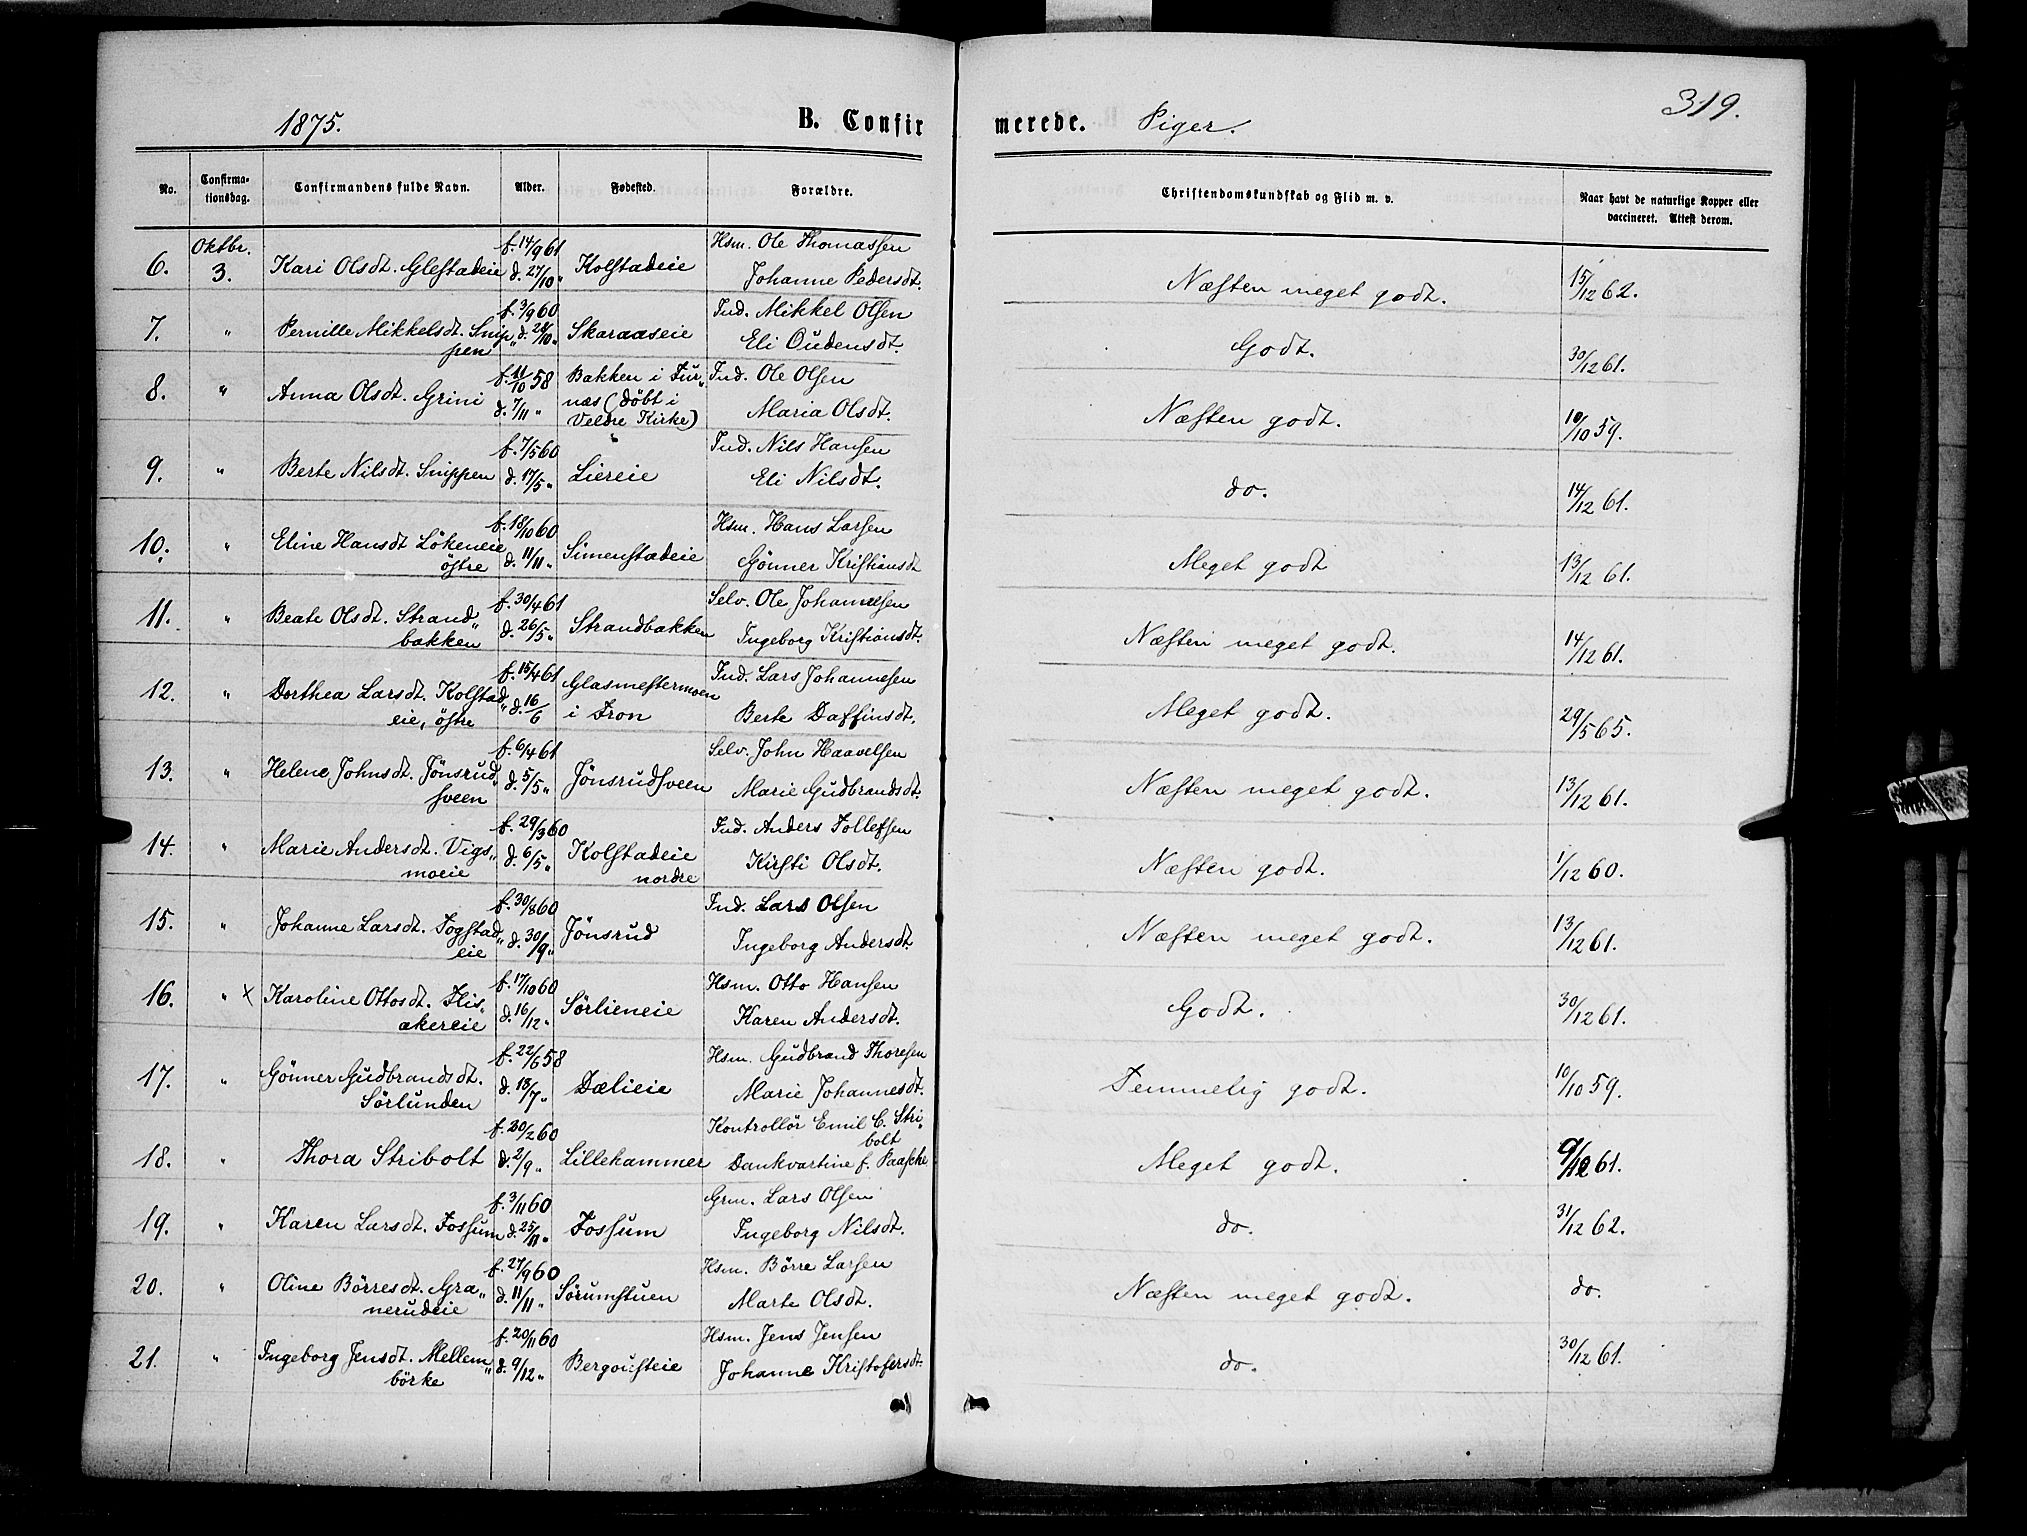 1875.
B. Confirmerede. Piger.
319.
No. Confirmationsdag. Confirmandens fulde Navn. Alder. Fødested. Forældre. Christendomskundskab og Flid m. v. Naar havt de naturlige Kopper eller vaccineret. Attest derom.
6. Oktbr. 3. Kari Olsdt. Glestadeie f. 14/9 61 d. 27/10 " Kolstadeie Hsm. Ole Thomassen Johanne Pedersdt. Næsten meget godt. 15/12 62.
7. " Pernille Mikkelsdt. Snip„pen f. 3/9 60 d. 28/10 " Skaraaseie Ind. Mikkel Olsen Eli Oudensdt. Godt. 30/12 61.
8. " Anna Olsdt. Grini f. 11/10 58 d. 7/11 " Bakken i Fur„næs (døbt i Veldre Kirke) Ind. Ole Olsen Maria Olsdt. Næsten godt. 10/10 59.
9. " Berte Nilsdt. Snippen f. 7/5 60 d. 17/5 " Liereie Ind. Nils Hansen Eli Nilsdt. do. 14/12 61.
10. " Eline Hansdt Lökeneie östre f. 18/10 60 d. 11/11 " Simenstadeie Hsm. Hans Larsen Gönner Kristiansdt Meget godt 13/12 61.
11. " Beate Olsdt. Strand„bakken f. 30/4 61 d. 26/5 " Strandbakken Selv. Ole Johannesen Ingeborg Kristiansdt. Næsten meget godt. 14/12 61.
12. " Dorthea Larsdt. Kolstad„eie, östre f. 15/4 61 d. 16/6 Glasmestermoen i Fron Ind. Lars Johannesen Berte Daffinsdt. Meget godt. 29/5 65.
13. " Helene Johnsdt. Jönsrud„sveen f. 6/4 61 d. 5/5 " Jönsrudsveen Selv. John Haavelsen Marie Gudbrandsdt. Næsten meget godt. 13/12 61.
14. " Marie Andersdt. Vigs„moeie f. 29/3 60 d. 6/5 " Kolstadeie nordre Ind. Anders Tollefsen Kirsti Olsdt. Næsten godt. 1/12 60.
15. " Johanne Larsdt. Fogstad„eie f. 30/8 60 d. 30/9 " Jönsrud Ind. Lars Olsen Ingeborg Andersdt Næsten meget godt. 13/12 61.
16. " X Karoline Ottosdt. Flis„akereie f. 17/10 60 d. 16/12 " Sörlieneie Hsm. Otto Hansen Karen Andersdt. Godt. 30/12 61.
17. " Gönner Gudbrandsdt. Sörlunden f. 22/6 58 d. 18/7 " Dælieie Hsm. Gudbrand Thoresen Marie Johannesdt. Temmelig godt. 10/10 59.
18. " Thora Stribolt f. 20/2 60 d. 2/9 " Lillehammer Kontrollör Emil C. Stri„bolt Dankvartine f. Paaske Meget godt. 9/12 61.
19. " Karen Larsdt. Fossum f. 3/11 60 d. 25/11 " Fossum Grm. Lars Olsen Ingeborg Nilsdt. do. 31/12 62.
20. " Oline Börresdt. Gra„nerudeie f. 27/9 60 d. 11/11 " Sörumstuen Hsm. Börre Larsen Marte Olsdt. Næsten meget godt. do.
21. " Ingeborg Jensdt. Mellem„börke f. 20/11 60 d. 9/12 " Bergousteie Hsm. Jens Jensen Johanne Kristofersdt. do. 30/12 61.